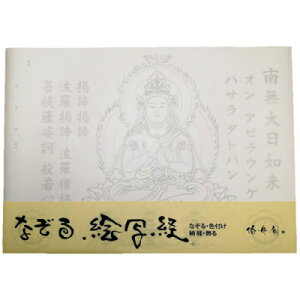 南無大日如来
オン アビラウンケ
バサラ タトバン
羯諦羯諦
波羅羯諦 波羅僧羯
菩提薩婆訶 般若心
なぞる 絵写経
なぞる・色付け
納経・飾る